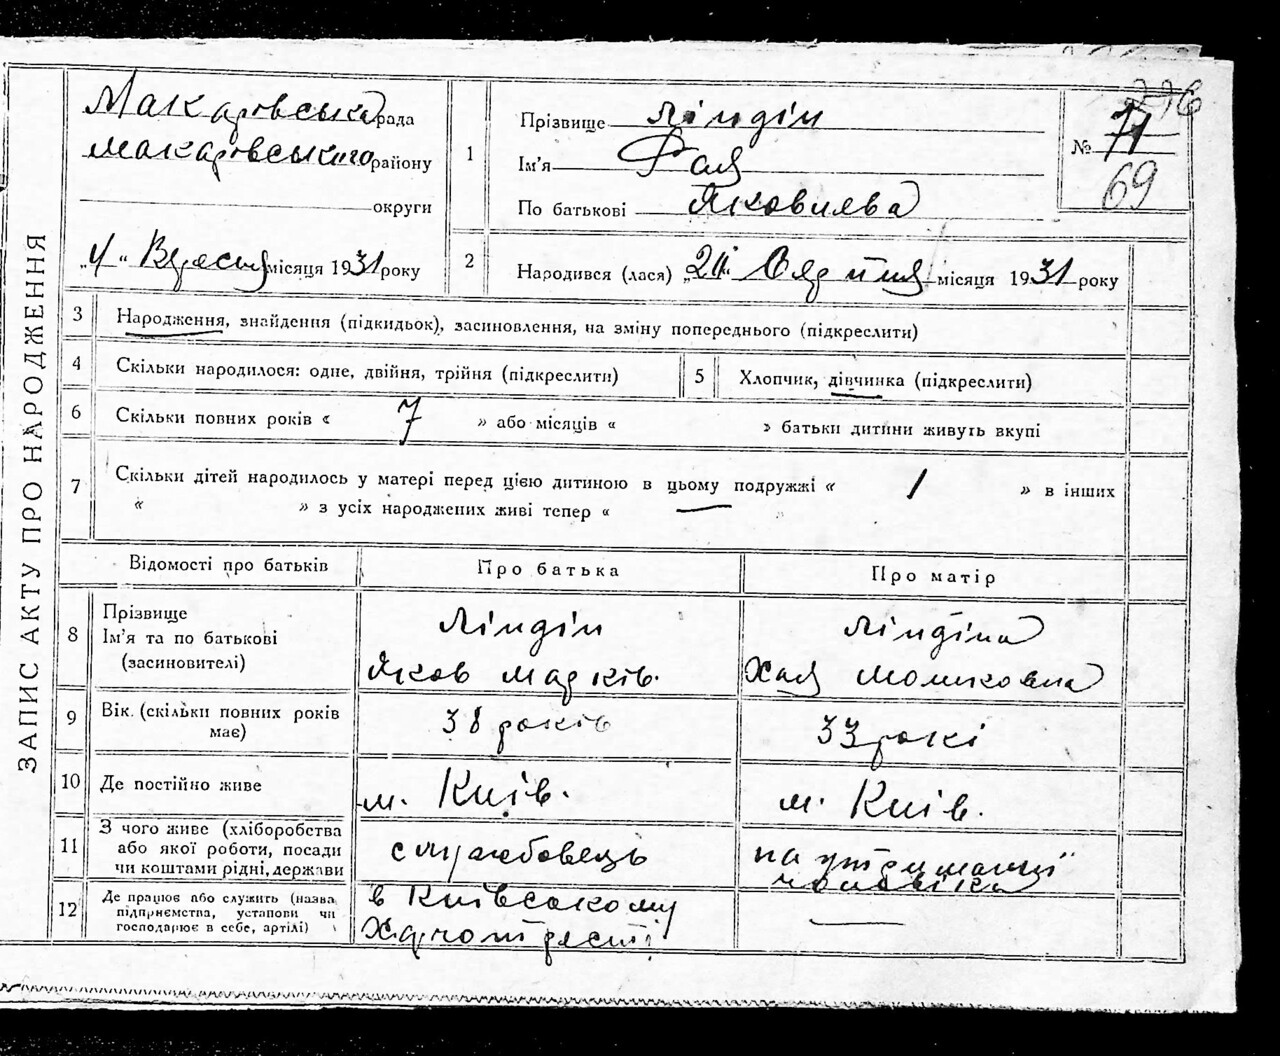 ЗАПИС АКТУ ПРО НАРОДЖЕННЯ
Макарівська рада
Макарівського району
округи
„4“ Вересня місяця 1931 року
1
Прізвище Ліндін
Ім’я Фаля
По батькові Яковлева
№ 71
69
2
Народився (лася) місяця 1931 року
3 Народження, знайдення (підкидьок), засиновлення, на зміну попереднього (підкреслити)
4 Скільки народилося: одне, двійня, трійня (підкреслити)
5 Хлопчик, дівчинка (підкреслити)
6 Скільки повних років « 7 » або місяців « » батьки дитини живуть вкупі
7 Скільки дітей народилось у матері перед цією дитиною в цьому подружжі « 1 » в інших
« » з усіх народжених живі тепер «
Відомості про батьків Про батька Про матір
8
Прізвище
Ім’я та по батькові
(засиновителі)
Ліндін
Яков Марків.
Ліндіна
Хая Мошковна
9
Вік. (скільки повних років
має)
38 років
33 рокі
10 Де постійно живе
м. Київ.
м. Київ.
11
З чого живе (хліборобства
або якої роботи, посади
чи коштами рідні, держави
службовець
на утриманні
чоловіка
12
Де працює або служить (назва
підприємства, установи чи
господарює в себе, артілі)
в Київському
Харчотресті
—